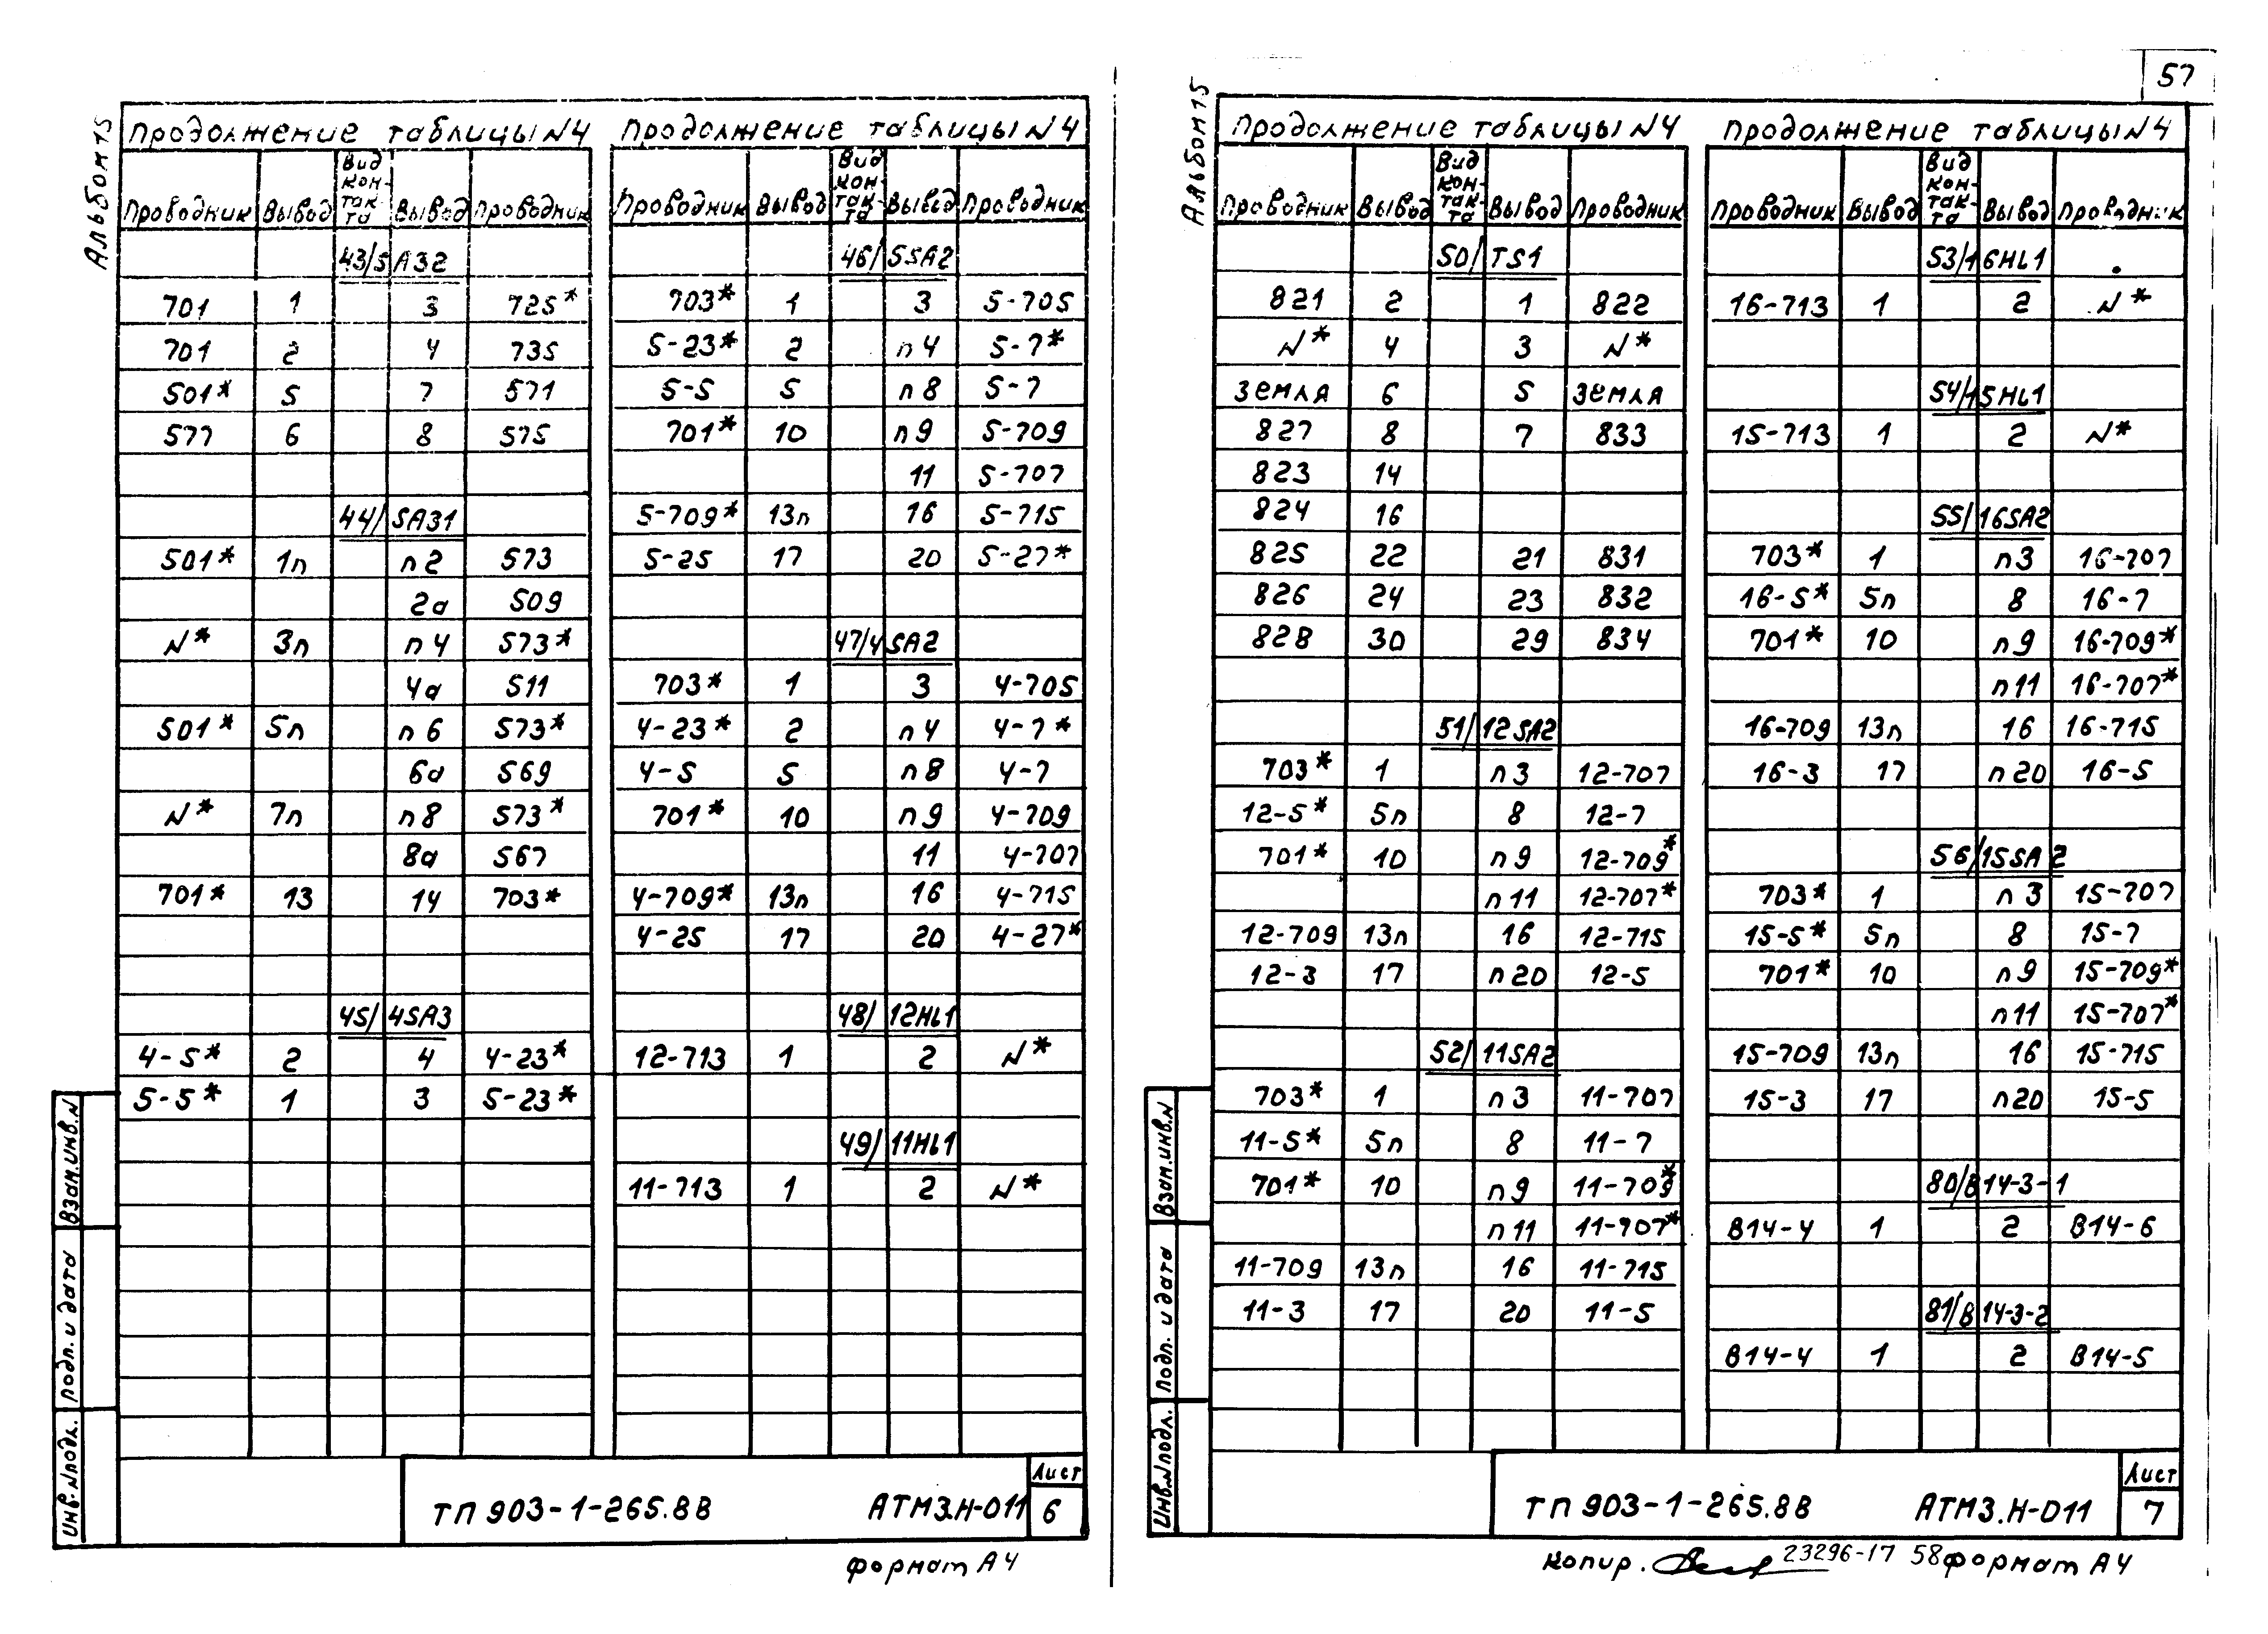 57
Альбом 15
Продолжение таблицы N4
Проводник Вывод Вид контакта Вывод Проводник
43/SA32
701 1 3 725*
701 2 4 735
501* 5 7 571
577 6 8 575
44/SA31
501* 1п п2 573
2а 509
N* 3п п4 573*
4а 511
501* 5п п6 573*
6а 569
N* 7п п8 573*
8а 567
701* 13 14 703*
45/4SA3
4-5* 2 4 4-23*
5-5* 1 3 5-23*
Продолжение таблицы N4
Проводник Вывод Вид контакта Вывод Проводник
46/5SA2
703* 1 3 5-705
5-23* 2 п4 5-7*
5-5 5 п8 5-7
701* 10 п9 5-709
11 5-707
5-709* 13п 16 5-715
5-25 17 20 5-27*
47/4SA2
703* 1 3 4-705
4-23* 2 п4 4-7*
4-5 5 п8 4-7
701* 10 п9 4-709
11 4-707
4-709* 13п 16 4-715
4-25 17 20 4-27*
48/12HL1
12-713 1 2 N*
49/11HL1
11-713 1 2 N*
Взам.инв.N
Подп. и дата
Инв.Nподл.
ТП 903-1-265.88 АТМ3.Н-011
Лист
6
формат А4
Альбом 15
Продолжение таблицы N4
Проводник Вывод Вид контакта Вывод Проводник
50/TS1
821 2 1 822
N* 4 3 N*
Земля 6 5 Земля
827 8 7 833
823 14
824 16
825 22 21 831
826 24 23 832
828 30 29 834
51/12SA2
703* 1 п3 12-707
12-5* 5п 8 12-7
701* 10 п9 12-709*
п11 12-707*
12-709 13п 16 12-715
12-3 17 п20 12-5
52/11SA2
703* 1 п3 11-707
11-5* 5п 8 11-7
701* 10 п9 11-709*
п11 11-707*
11-709 13п 16 11-715
11-3 17 20 11-5
Продолжение таблицы N4
Проводник Вывод Вид контакта Вывод Проводник
53/16HL1
16-713 1 2 N*
54/15HL1
15-713 1 2 N*
55/16SA2
703* 1 п3 16-707
16-5* 5п 8 16-7
701* 10 п9 16-709*
п11 16-707*
16-709 13п 16 16-715
16-3 17 п20 16-5
56/15SA2
703* 1 п3 15-707
15-5* 5п 8 15-7
701* 10 п9 15-709*
п11 15-707*
15-709 13п 16 15-715
15-3 17 п20 15-5
80/В14-3-1
В14-4 1 2 В14-6
81/В14-3-2
В14-4 1 2 В14-5
Взам.инв.N
Подп. и дата
Инв.Nподл.
ТП 903-1-265.88 АТМ3.Н-011
Лист
7
Копир. 23296-17 58 формат А4